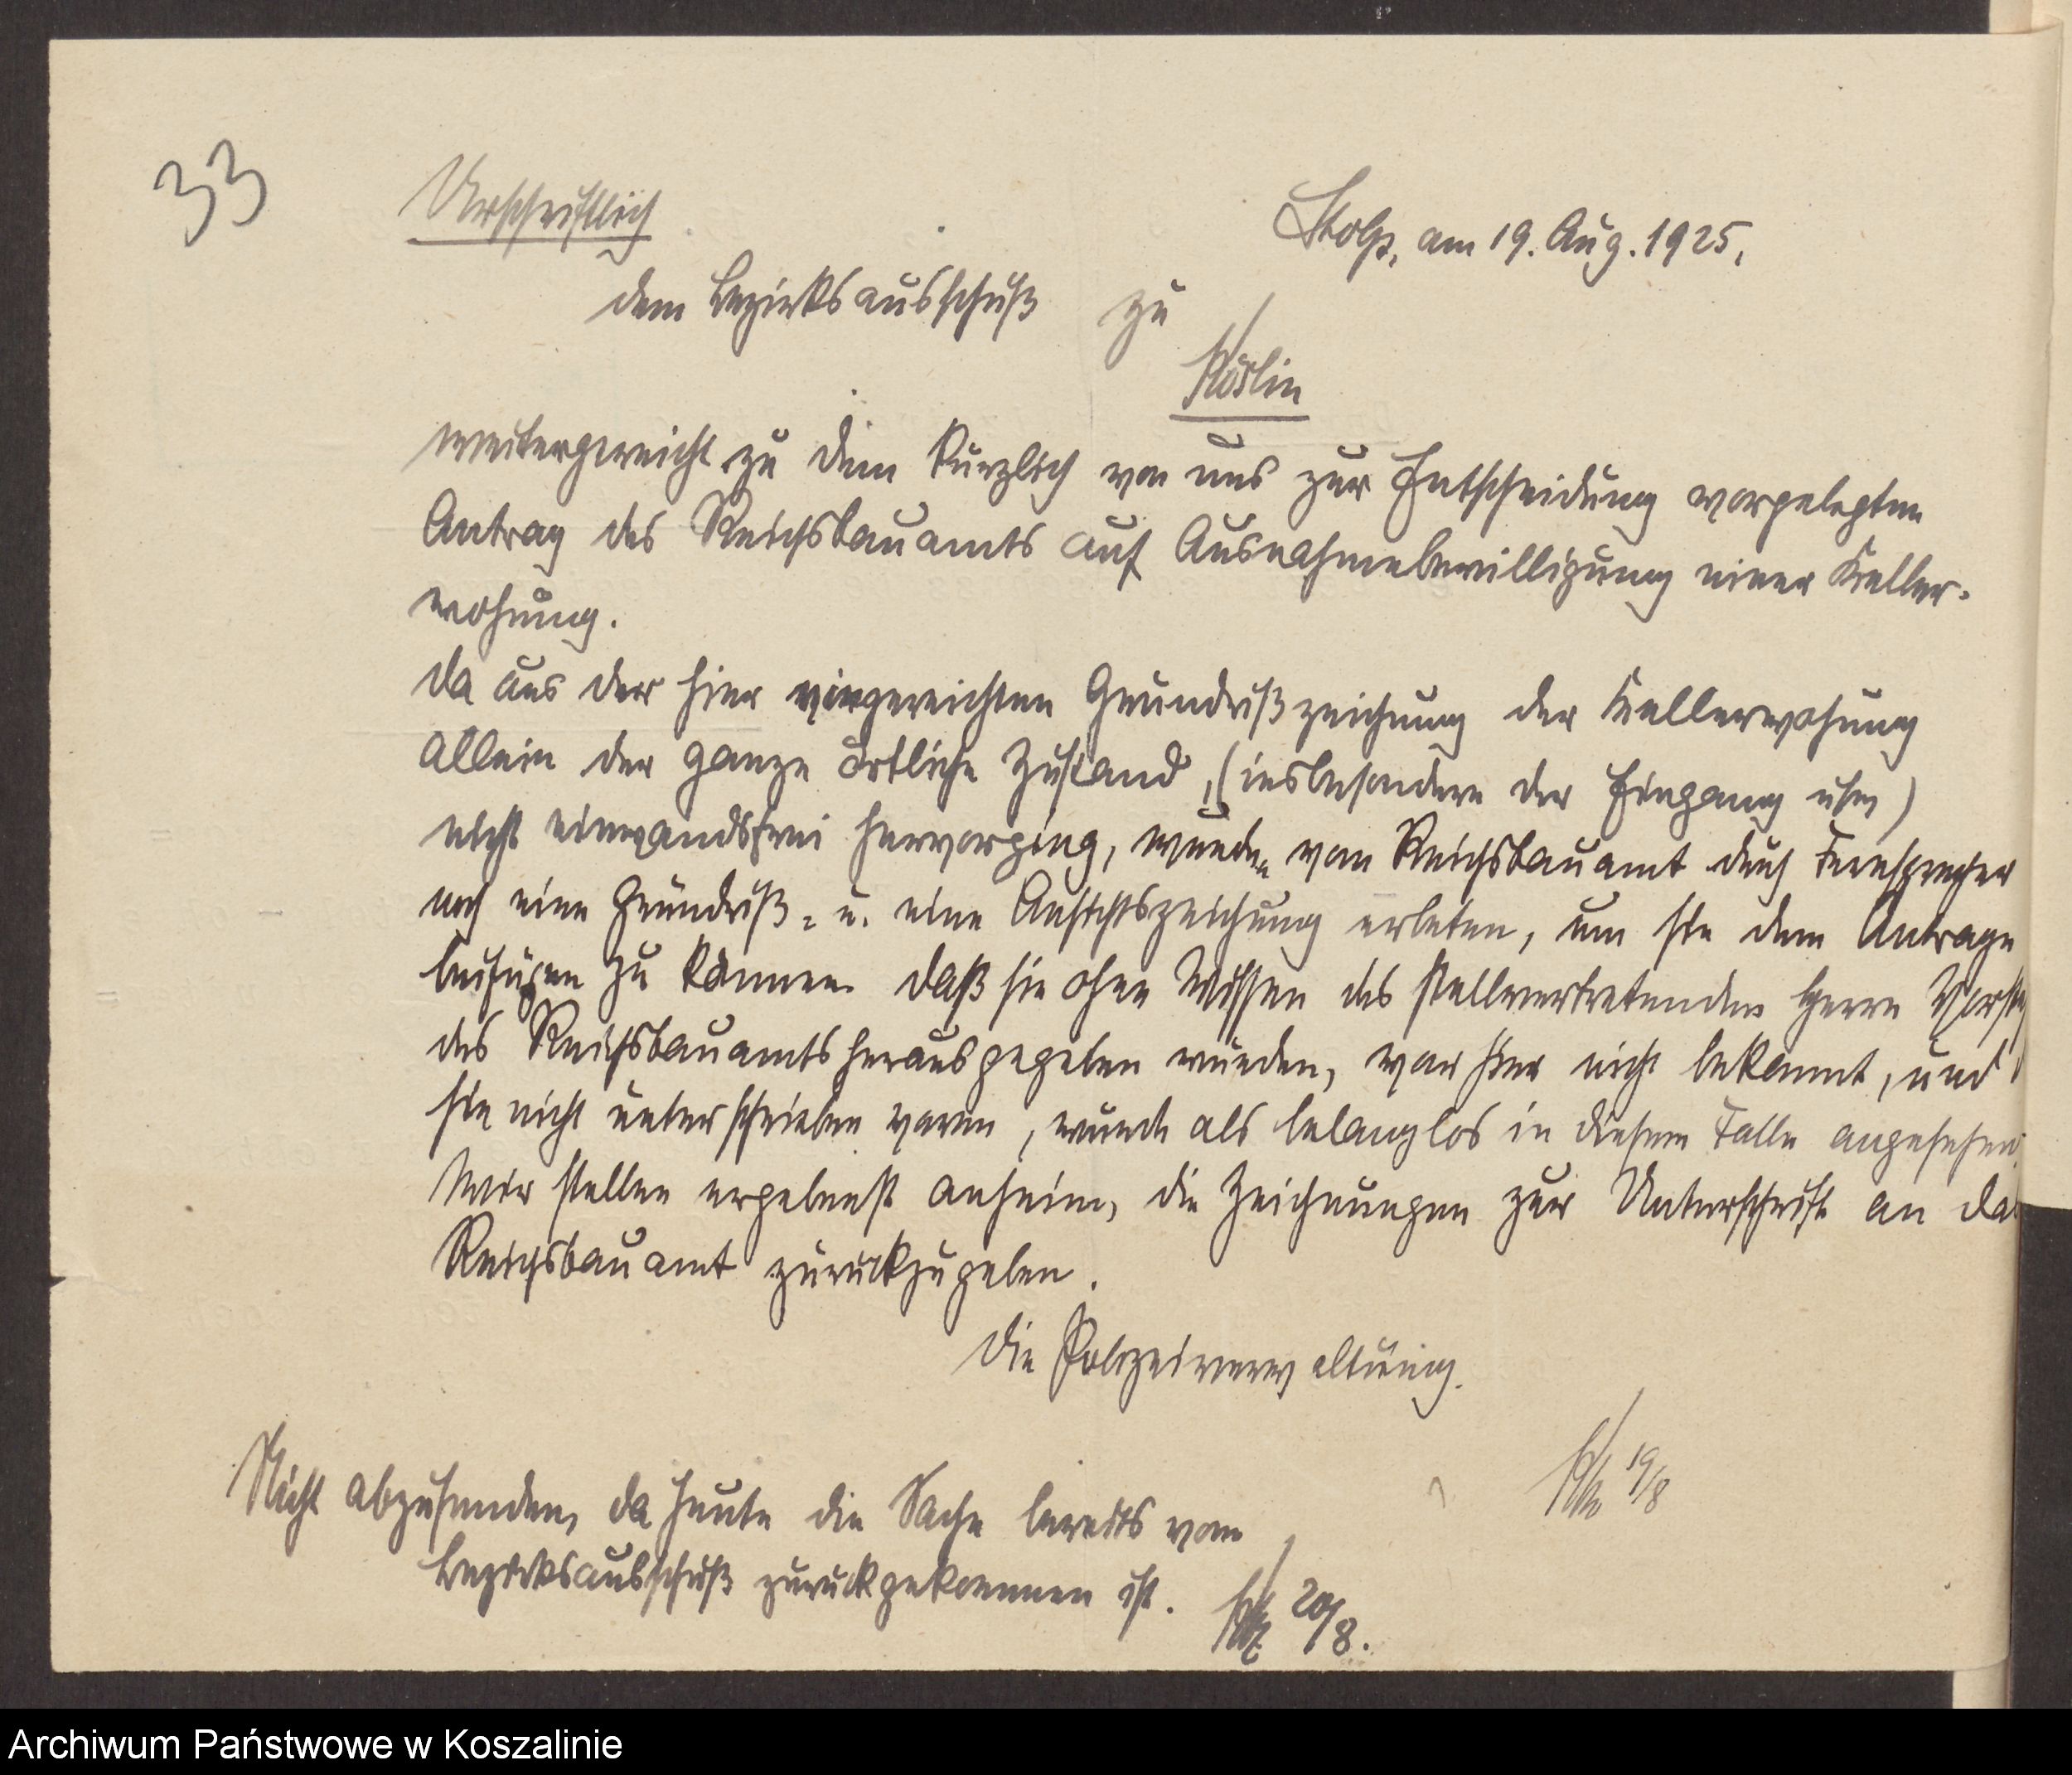 33
Urschriftlich
Stolp, am 19. Aug. 1925.
dem Bezirksausschuß zu
Köslin
weitergereicht zu dem kürzlich von uns zur Entscheidung vorgelegten
Antrag des Reichsbauamts auf Ausnahmebewilligung einer Keller-
wohnung.
Da aus der hier eingereichten Grundrißzeichnung der Kellerwohnung
allein der ganze örtliche Zustand, (insbesondere der Eingang usw)
nicht einwandsfrei hervorging, wurden vom Reichsbauamt durch Fernsprecher
noch eine Grundriß- u. eine Ansichtszeichnung erbeten, um sie dem Antrage
beifügen zu können. Daß sie ohne Wissen des stellvertretenden Herrn Vorst
des Reichsbauamts herausgegeben wurden, war hier nicht bekannt, und
sie nicht unterschrieben waren, wurde als belanglos in diesem Falle angesehen.
Wir stellen ergebenst anheim, die Zeichnungen zur Unterschrift an das
Reichsbauamt zurückzugeben.
Die Polizeiverwaltung.
19/8
Nicht abzusenden, da heute die Sache bereits vom
Bezirksausschuß zurückgekommen ist.
20/8.
Archiwum Państwowe w Koszalinie